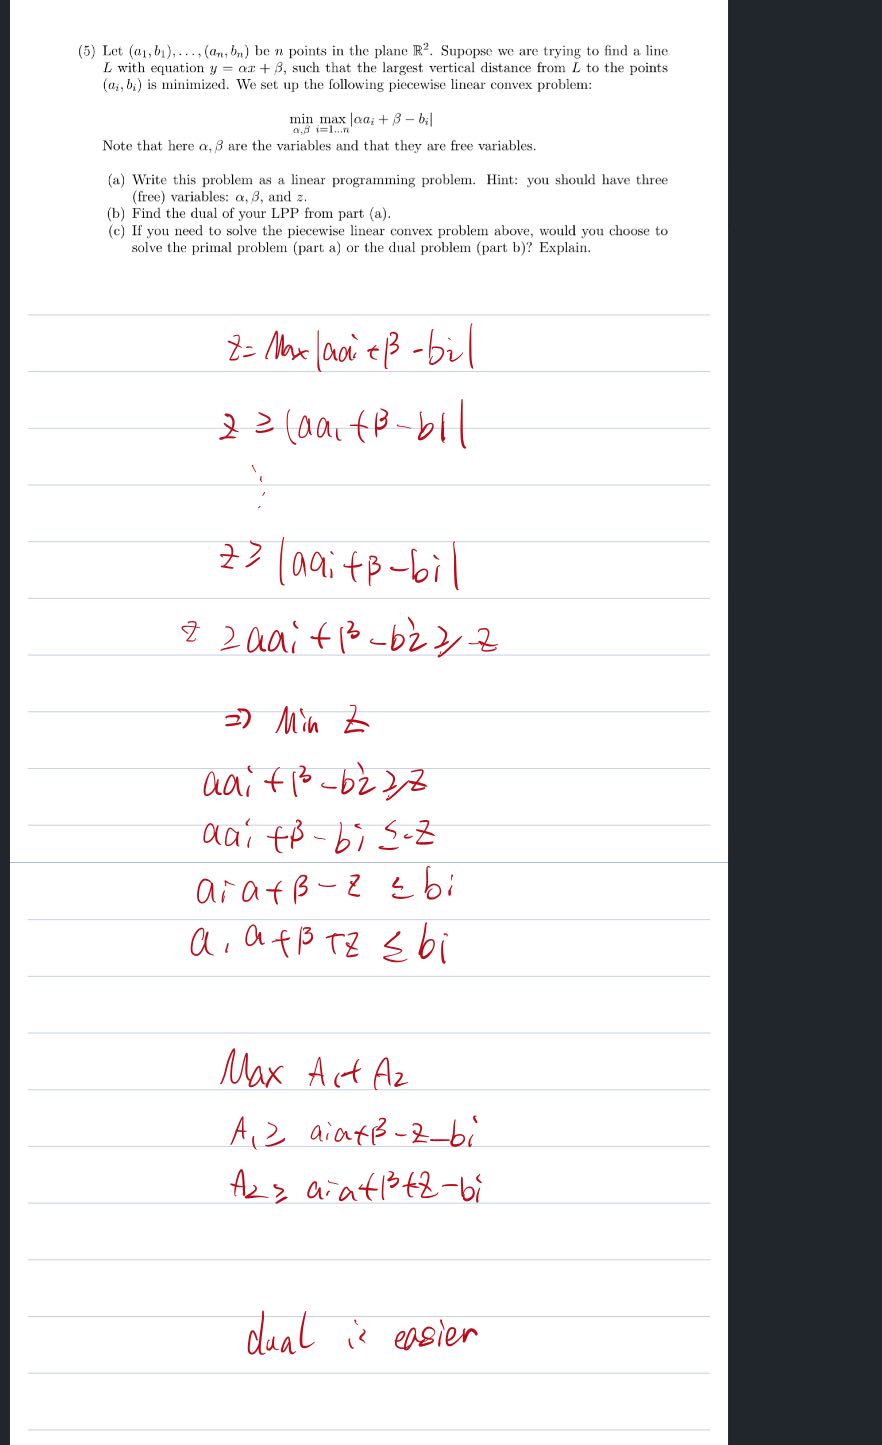 (5) Let (a₁, b₁), . . . , (aₙ, bₙ) be n points in the plane ℝ². Supopse we are trying to find a line
L with equation y = αx + β, such that the largest vertical distance from L to the points
(aᵢ, bᵢ) is minimized. We set up the following piecewise linear convex problem:
min max |αaᵢ + β − bᵢ|
α,β i=1...n
Note that here α, β are the variables and that they are free variables.
(a) Write this problem as a linear programming problem. Hint: you should have three
(free) variables: α, β, and z.
(b) Find the dual of your LPP from part (a).
(c) If you need to solve the piecewise linear convex problem above, would you choose to
solve the primal problem (part a) or the dual problem (part b)? Explain.
z = Max |aai + β - bi|
z ≥ |aa₁ + β - b1|
⋮
z ≥ |aai + β - bi|
z ≥ aai + β - bi ≥ -z
⇒ Min z
aai + β - bi ≥ z
aai + β - bi ≤ -z
aia + β - z ≤ bi
aia + β + z ≤ bi
Max A₁ + A₂
A₁ ≥ aia + β - z - bi
A₂ ≥ aia + β + z - bi
dual is easier